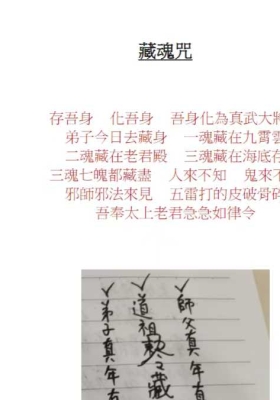 藏魂咒
存吾身 化吾身 吾身化為真武大將
弟子今日去藏身 一魂藏在九霄雲
二魂藏在老君殿 三魂藏在海底存
三魂七魄都藏盡 人來不知 鬼來不
邪師邪法來見 五雷打的皮破骨碎
吾奉太上老君急急如律令
師父真年有
道祖敕令藏
弟子真年有